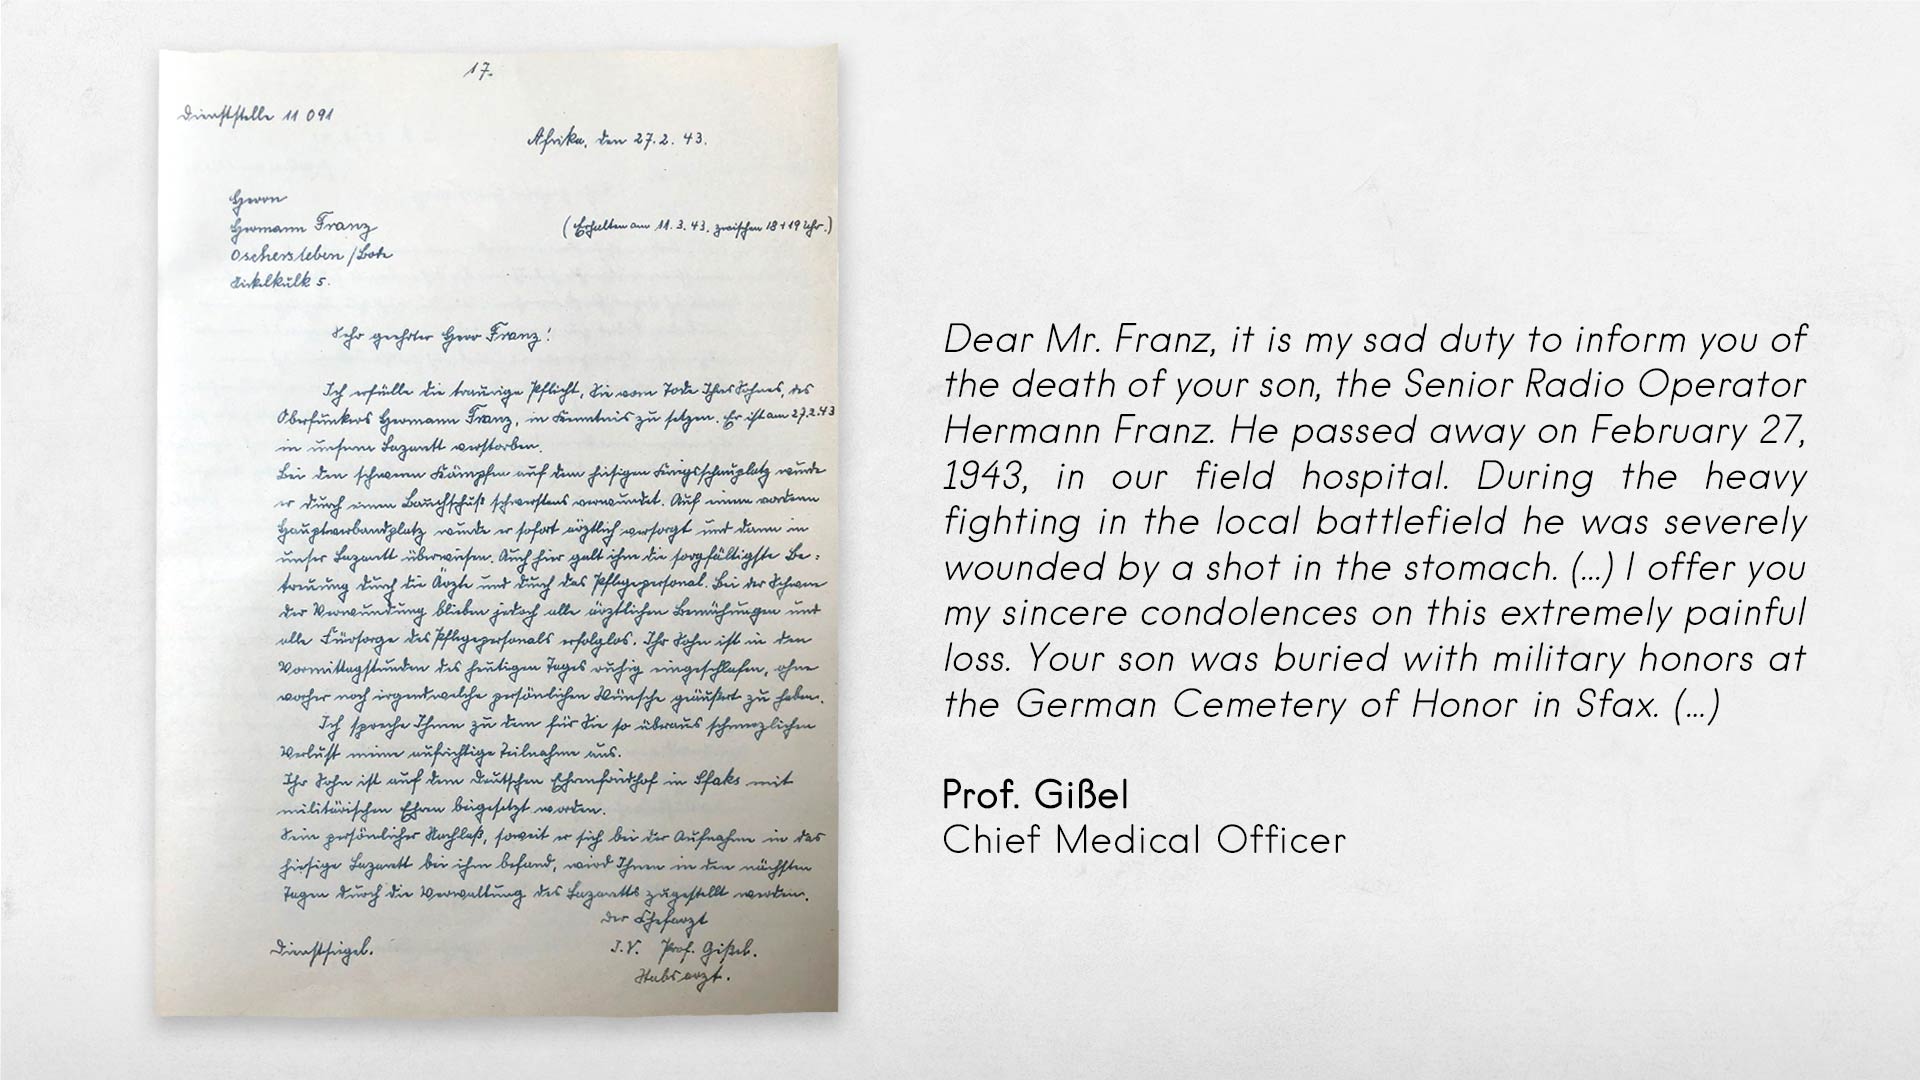 17.
Dienststelle 11 091
Afrika, den 27.2.43.
Herrn
Hermann Franz
(Erhalten am 11.3.43. zwischen 18+19 Uhr.)
Oschersleben/Bode
5.
Sehr geehrter Herr Franz!
Ich erfülle die traurige Pflicht, Sie vom Tode Ihres Sohnes, des
Oberfunkers Hermann Franz, in Kenntnis zu setzen. Er ist am 27.2.43
in unserm Lazarett verstorben.
Bei den schweren Kämpfen auf dem hiesigen Kriegsschauplatz wurde
er durch einen Bauchschuß schwerstens verwundet. Auf einem vordern
Hauptverbandplatz wurde er sofort ärztlich versorgt und dann in
unser Lazarett überwiesen. Auch hier galt ihm die sorgfältigste Be-
treuung durch die Ärzte und durch das Pflegepersonal. Bei der Schwere
der Verwundung blieben jedoch alle ärztlichen Bemühungen und
alle Fürsorge des Pflegepersonals erfolglos. Ihr Sohn ist in den
Vormittagstunden des heutigen Tages ruhig eingeschlafen, ohne
vorher noch irgendwelche persönlichen Wünsche geäußert zu haben.
Ich spreche Ihnen zu dem für Sie so überaus schmerzlichen
Verlust meine aufrichtige Teilnahme aus.
Ihr Sohn ist auf dem Deutschen Ehrenfriedhof in Sfaks mit
militärischen Ehren beigesetzt worden.
Sein persönlicher Nachlaß, soweit er sich bei der Aufnahme in das
hiesige Lazarett bei ihm befand, wird Ihnen in den nächsten
Tagen durch die Verwaltung des Lazaretts zugestellt werden.
Der Chefarzt
Dienstsiegel. I.V. Prof. Gißel.
Stabsarzt.
Dear Mr. Franz, it is my sad duty to inform you of
the death of your son, the Senior Radio Operator
Hermann Franz. He passed away on February 27,
1943, in our field hospital. During the heavy
fighting in the local battlefield he was severely
wounded by a shot in the stomach. (...) I offer you
my sincere condolences on this extremely painful
loss. Your son was buried with military honors at
the German Cemetery of Honor in Sfax. (...)
Prof. Gißel
Chief Medical Officer